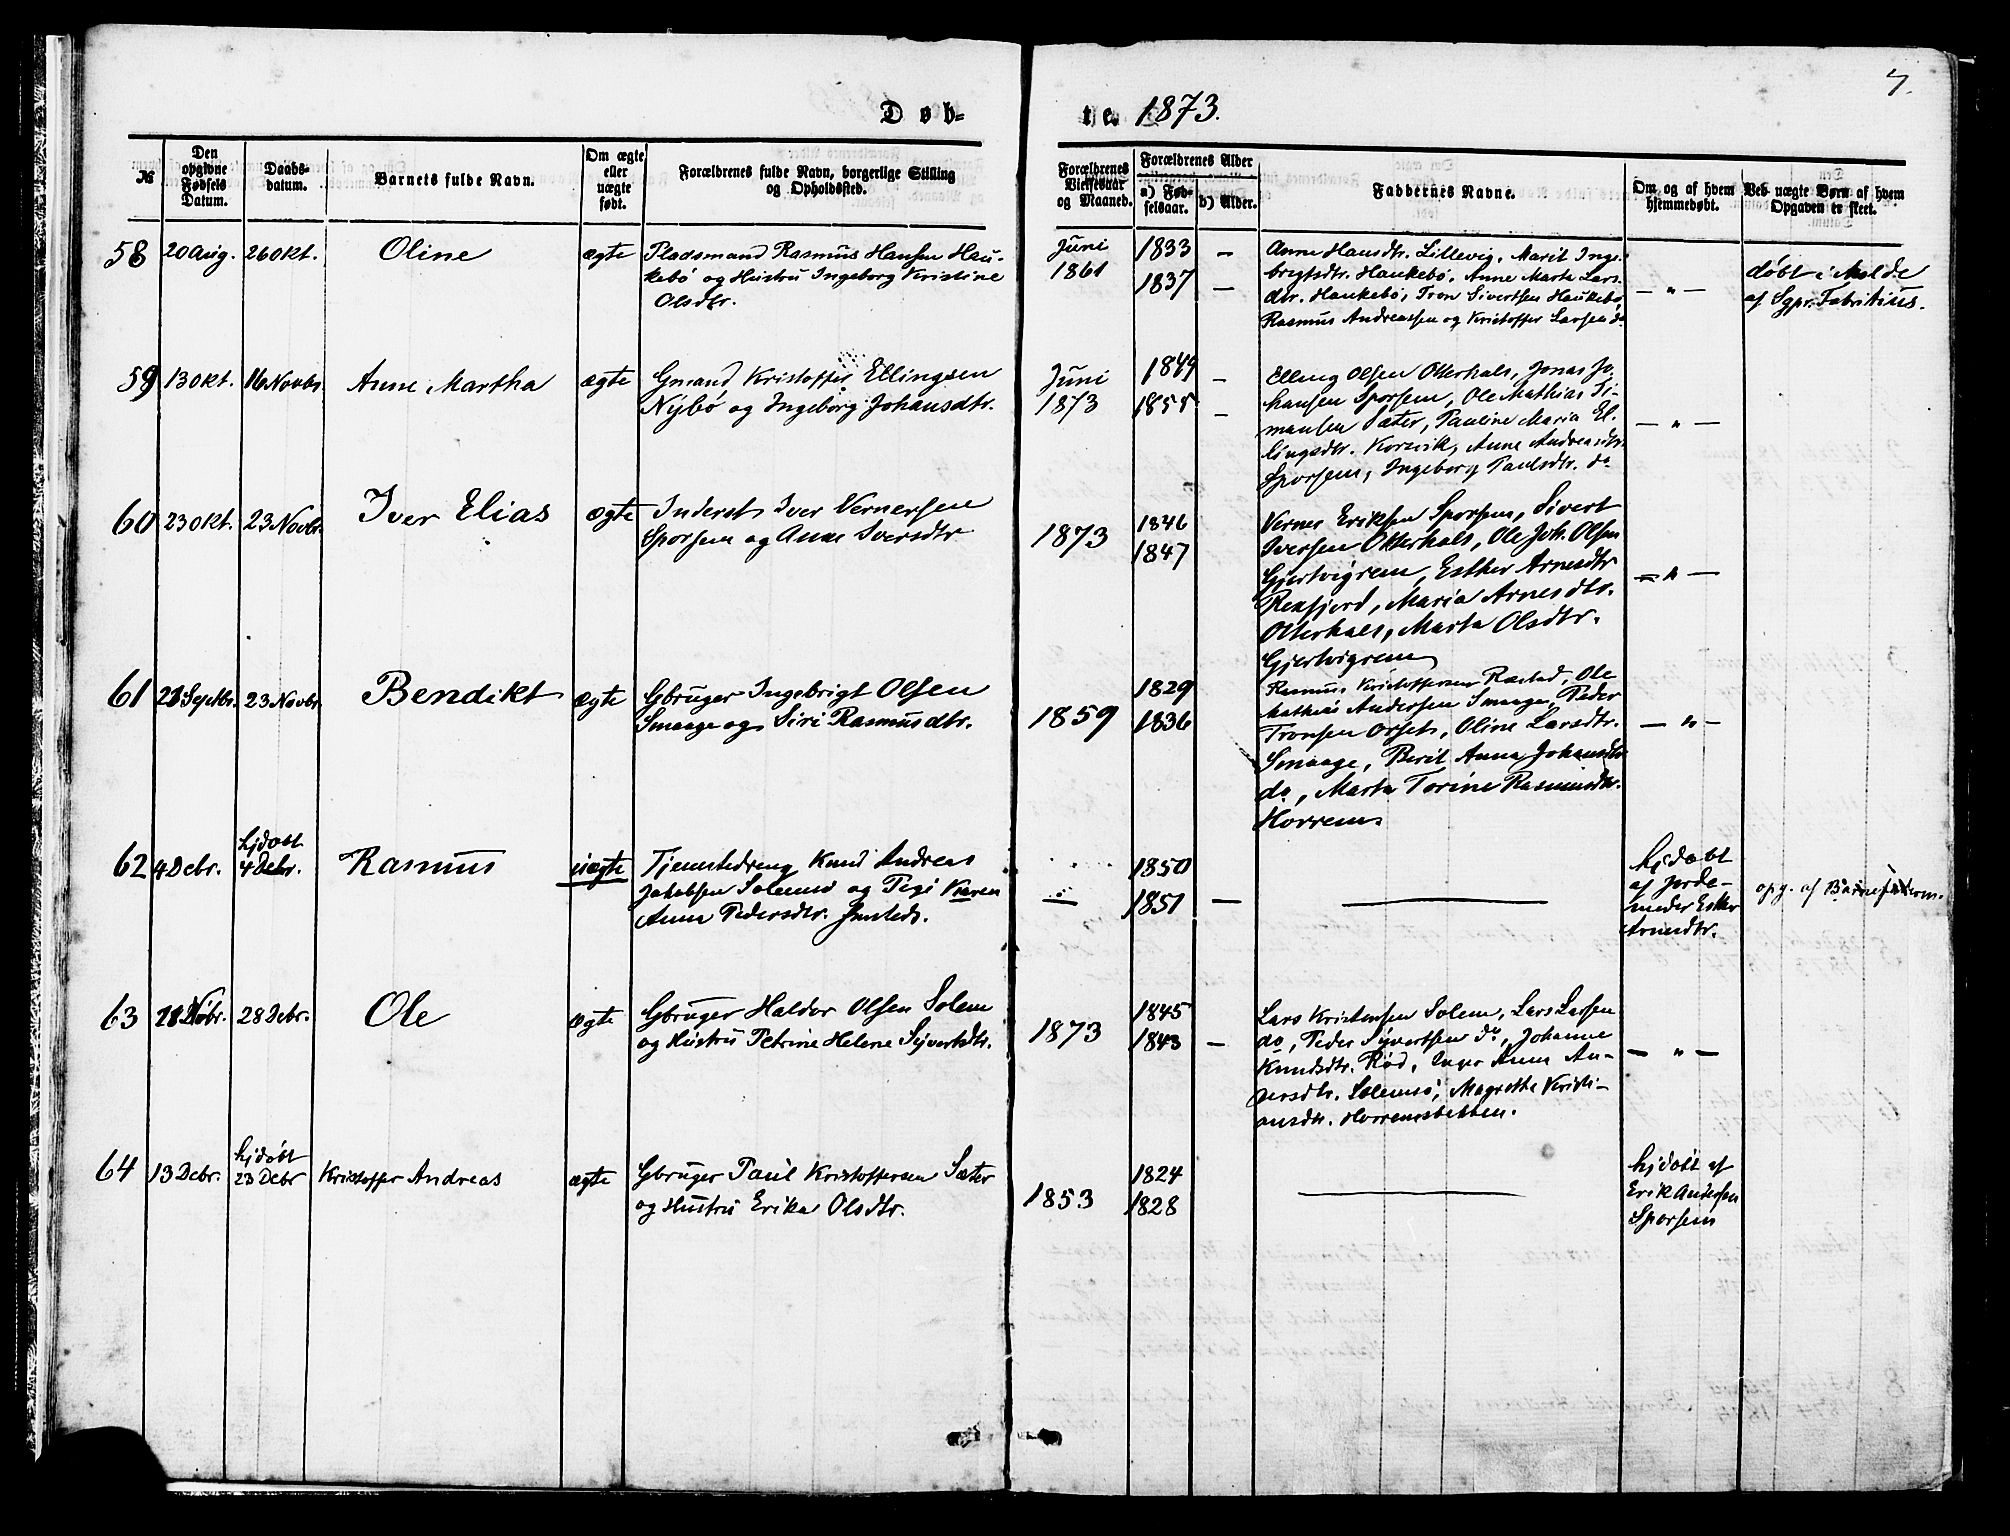 7.
Døb- te. 1873.
№
Den opgivne Fødsels Datum.
Daabs-datum.
Barnets fulde Navn.
Om ægte eller uægte født.
Forældrenes fulde Navn, borgerlige Stilling og Opholdssted.
Forældrenes Vielsesaar og Maaned.
Forældrenes Alder
a) Fød-selsaar.
b) Alder.
Faddernes Navne.
Om og af hvem hjemmedøbt.
Ved uægte Børn af hvem Opgaven er skeet.
58
20 Aug.
26 Okt.
Oline
ægte
Pladsmand Rasmus Hansen Hau-
kebø og Hustru Ingeborg Kristine
Olsdtr.
Juni
1861
1833 —
1837 —
Anne Hansdtr. Lillevig, Marit Inge-
brigtsdtr. Haukebø, Anne Marta Lars-
dtr. Haukebø, Tron Sivertsen Haukebø,
Rasmus Andreassen og Kristoffer Larsen do
— " —
døbt i Molde
af Sgpr. Fabritius.
59
13 Okt.
16 Novbr.
Anne Martha
ægte
Gmand Kristoffer Ellingsen
Nybø og Ingeborg Johansdtr.
Juni
1873
1849 —
1855 —
Elling Olsen Otterhals, Jonas Jo-
hansen Sporsem, Ole Mathias Si-
mansen Sæter, Pauline Maria El-
lingsdtr. Korsvik, Anne Andreasdtr.
Sporsem, Ingeborg Paulsdtr. do
— " —
60
23 Okt.
23 Novbr.
Iver Elias
ægte
Inderst Iver Vernersen
Sporsem og Anne Iversdtr
1873
1846
1847
Verner Eriksen Sporsem, Sivert
Iversen Otterhals, Ole Joh. Olsen
Gjertvigrem, Esther Arnesdtr
Rexfjord, Maria Arnesdtr.
Otterhals, Marta Olsdtr.
Gjertvigrem
— " —
61
21 Septbr.
23 Novbr.
Bendikt
ægte
Gbruger Ingebrigt Olsen
Smaage og Siri Rasmusdtr.
1859
1829
1836
Rasmus Kristoffersen Røsted, Ole
Mathias Andersen Smaage, Peder
Tronsen Orset, Oline Larsdtr.
Smaage, Berit Anna Johansdtr
do, Marta Torine Rasmusdtr.
Horrem
— " —
62
4 Debr.
hjdøbt
4 Debr.
Rasmus
uægte
Tjenestedreng Knud Andreas
Jakobsen Solemsø og Pige Karen
Anna Pedersdtr.
—
1850
1851 —
—
hjdøbt
af Jorde-
moder Esther
Arnesdtr.
opg. af Barnefaderen.
63
28 Nobr.
28 Debr.
Ole
ægte
Gbruger Haldor Olsen Solem
og Hustru Petrine Helene Syvertsdtr.
1873
1845
1843 —
Lars Kristensen Solem, Lars Larsen
do, Peder Syvertsen do, Johanne
Knudsdtr. Rød, Inger Anna An-
dersdtr. Solemsø, Magrethe Kristi-
ansdtr. Horremsbakken.
— " —
64
13 Debr.
hjdøbt
23 Debr
Kristoffer Andreas
ægte
Gbruger Paul Kristoffersen Sæter
og Hustru Erika Olsdtr.
1853
1824
1828
—
hjdøbt af
Erik Andersen
Sporsem